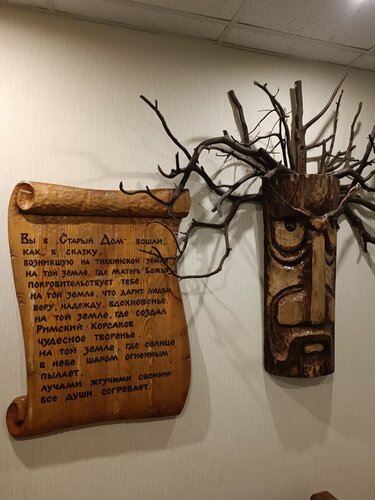 Вы в „Старый Дом" вошли,
как в сказку,
возникшую на тихвинской земле
на той земле, где Матерь Божья
покровительствует тебе.
на той земле, что дарит людям
веру, надежду, вдохновенье.
на той земле, где создал
Римский-Корсаков
чудесное творенье.
на той земле, где солнце
в небе шаром огненным
пылает,
лучами жгучими своими
все души согревает.